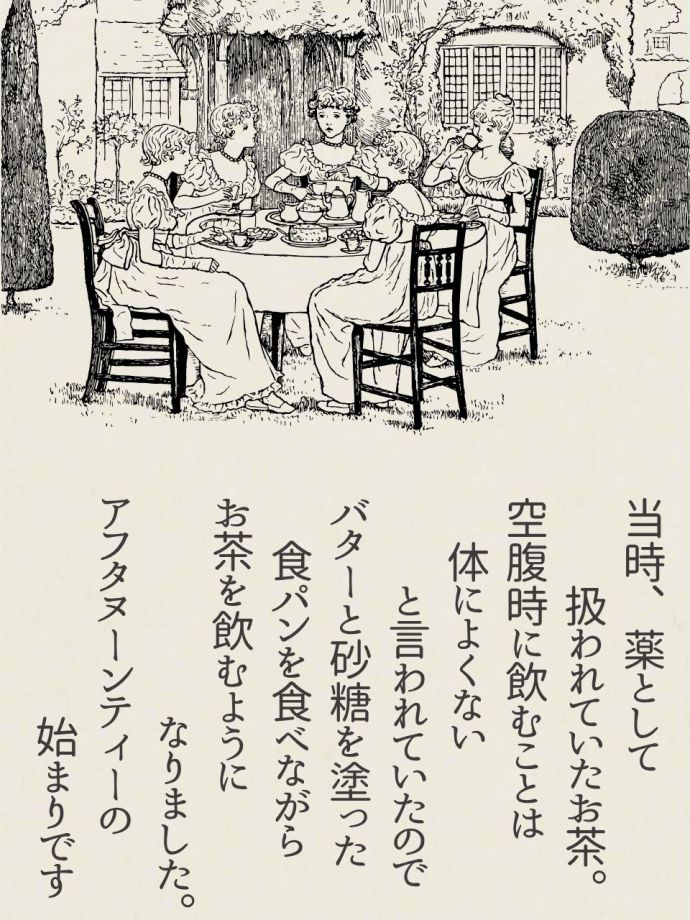 当時、薬として
扱われていたお茶。
空腹時に飲むことは
体によくない
と言われていたので
バターと砂糖を塗った
食パンを食べながら
お茶を飲むように
なりました。
アフタヌーンティーの
始まりです